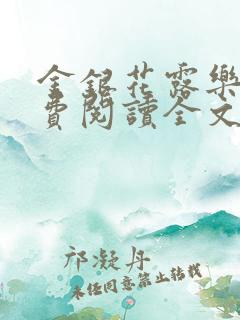 金銀花露樂
費閱讀全文
祁凝丹
未经同意禁止转载